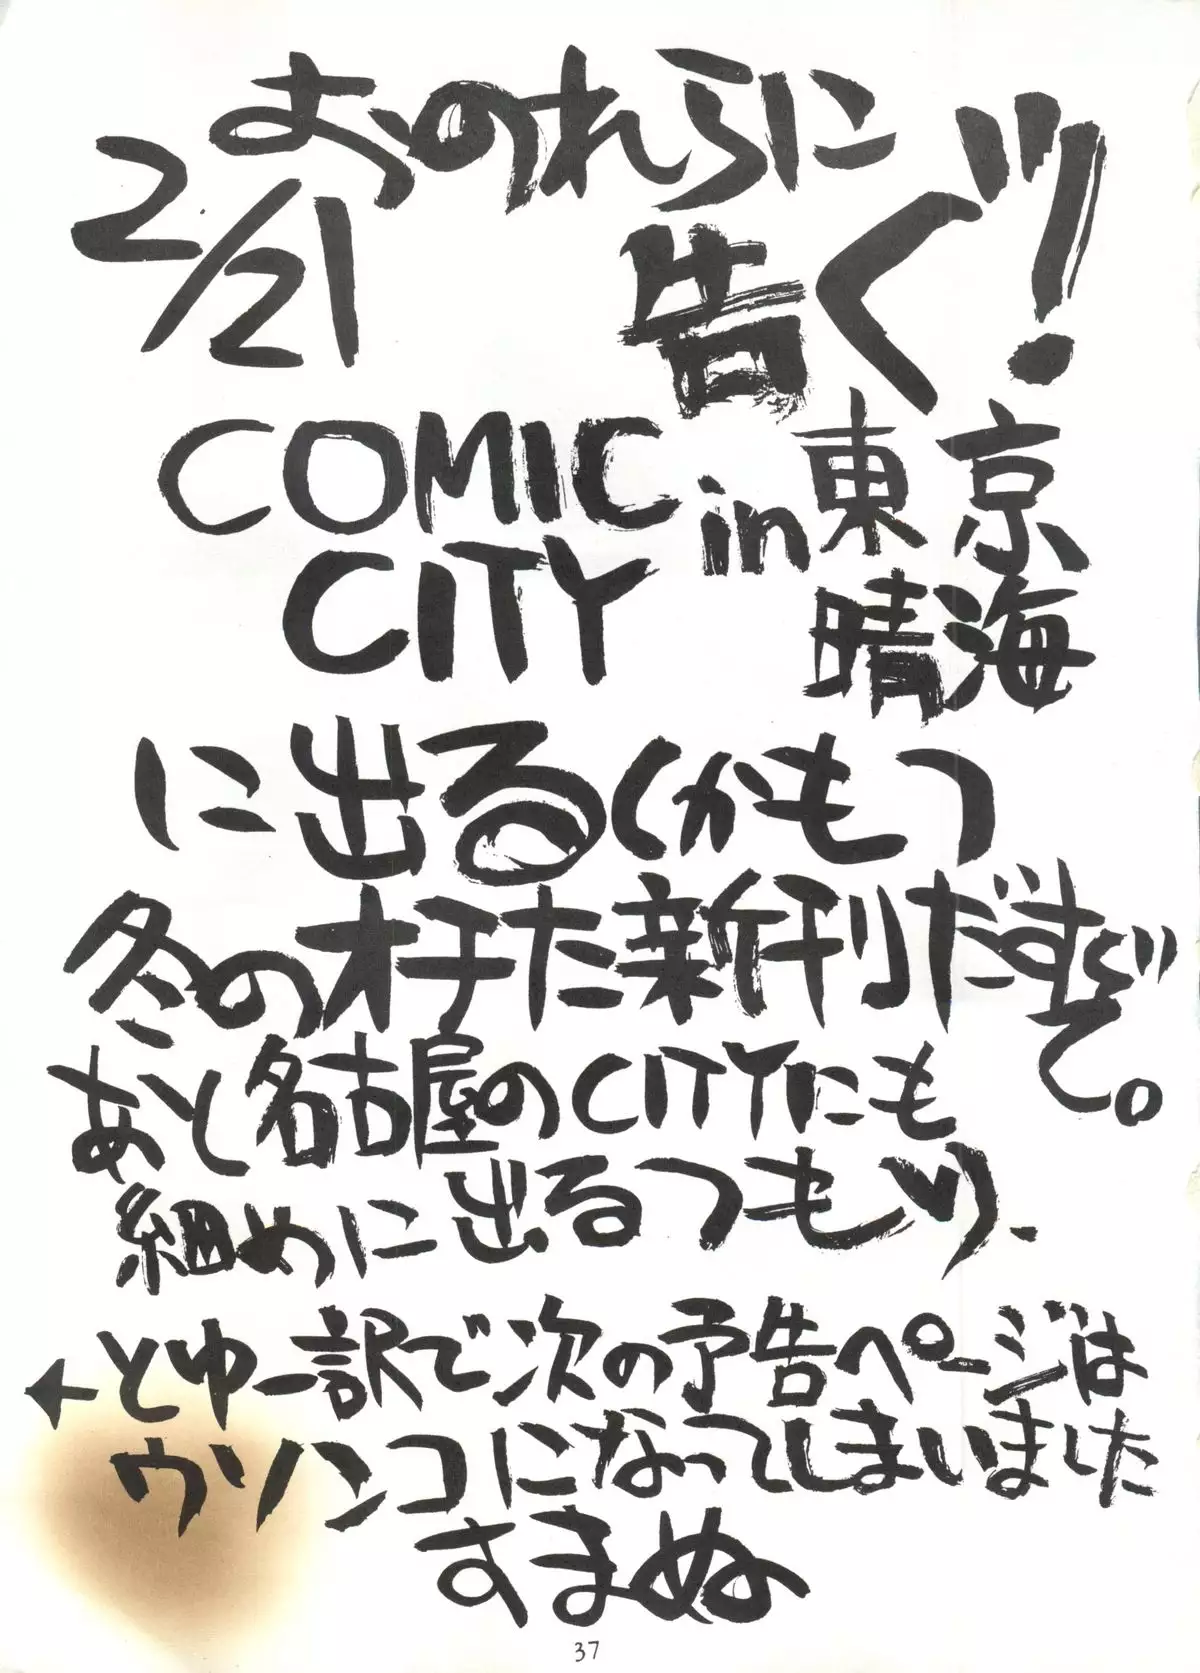 おのれらに
告ぐ!!
2/21
COMIC
CITY
in 東京
晴海
に出る(かも)
冬のオチた新刊だすぞ
て。
あと名古屋のCITYにも
組めに出るつもり、
←とゆー訳で次の予告ページは
ウソンコになってしまいました
すまぬ
37